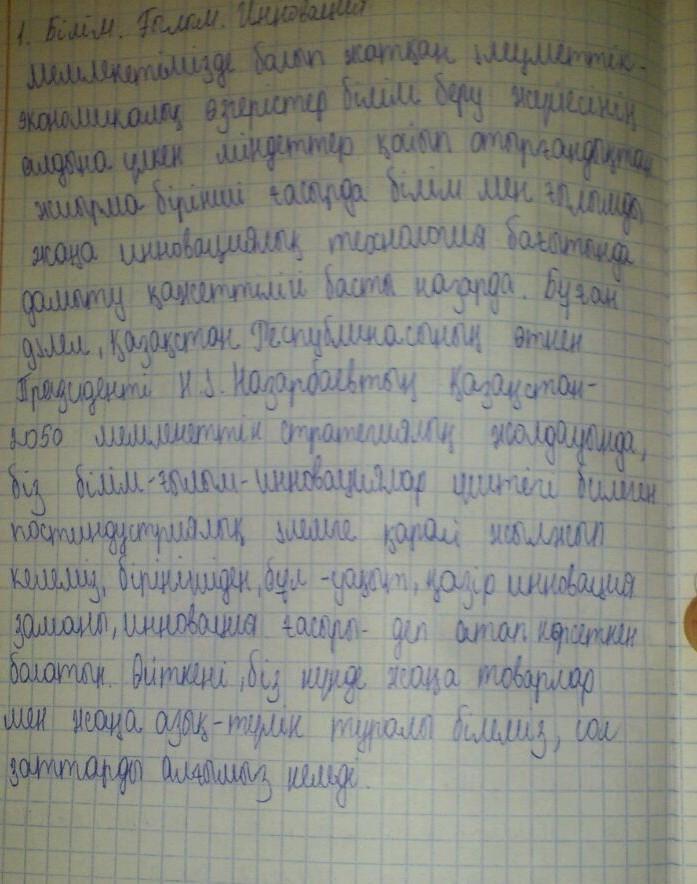 1. Білім. Ғылым. Инновация
Мемлекетімізде болып жатқан әлеуметтік-
экономикалық өзгерістер білім беру жүйесінің
алдына үлкен міндеттер қойып отырғандықтан
жиырма бірінші ғасырда білім мен ғылымды
жаңа инновациялық технология бағытында
дамыту қажеттілігі басты назарда. Бұған
дәлел, Қазақстан Республикасының өткен
Президенті Н.Ә. Назарбаевтың Қазақстан-
2050 мемлекеттік стратегиялық жолдауында,
біз білім-ғылым-инновациялар үштігі билеген
постиндустриялық әлемге қарай жылжып
келеміз, біріншіден, бұл -уақыт, қазір инновация
заманы, инновация ғасыры- деп атап көрсеткен
болатын. Өйткені, біз күнде жаңа товарлар
мен жаңа азық-түлік туралы білеміз, сол
заттарды алғымыз келеді.